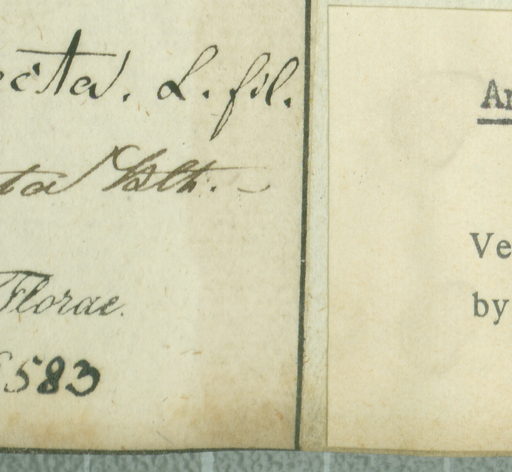 ecta. L. fil.
ta Kth.
Florae.
583
An
Ve
by